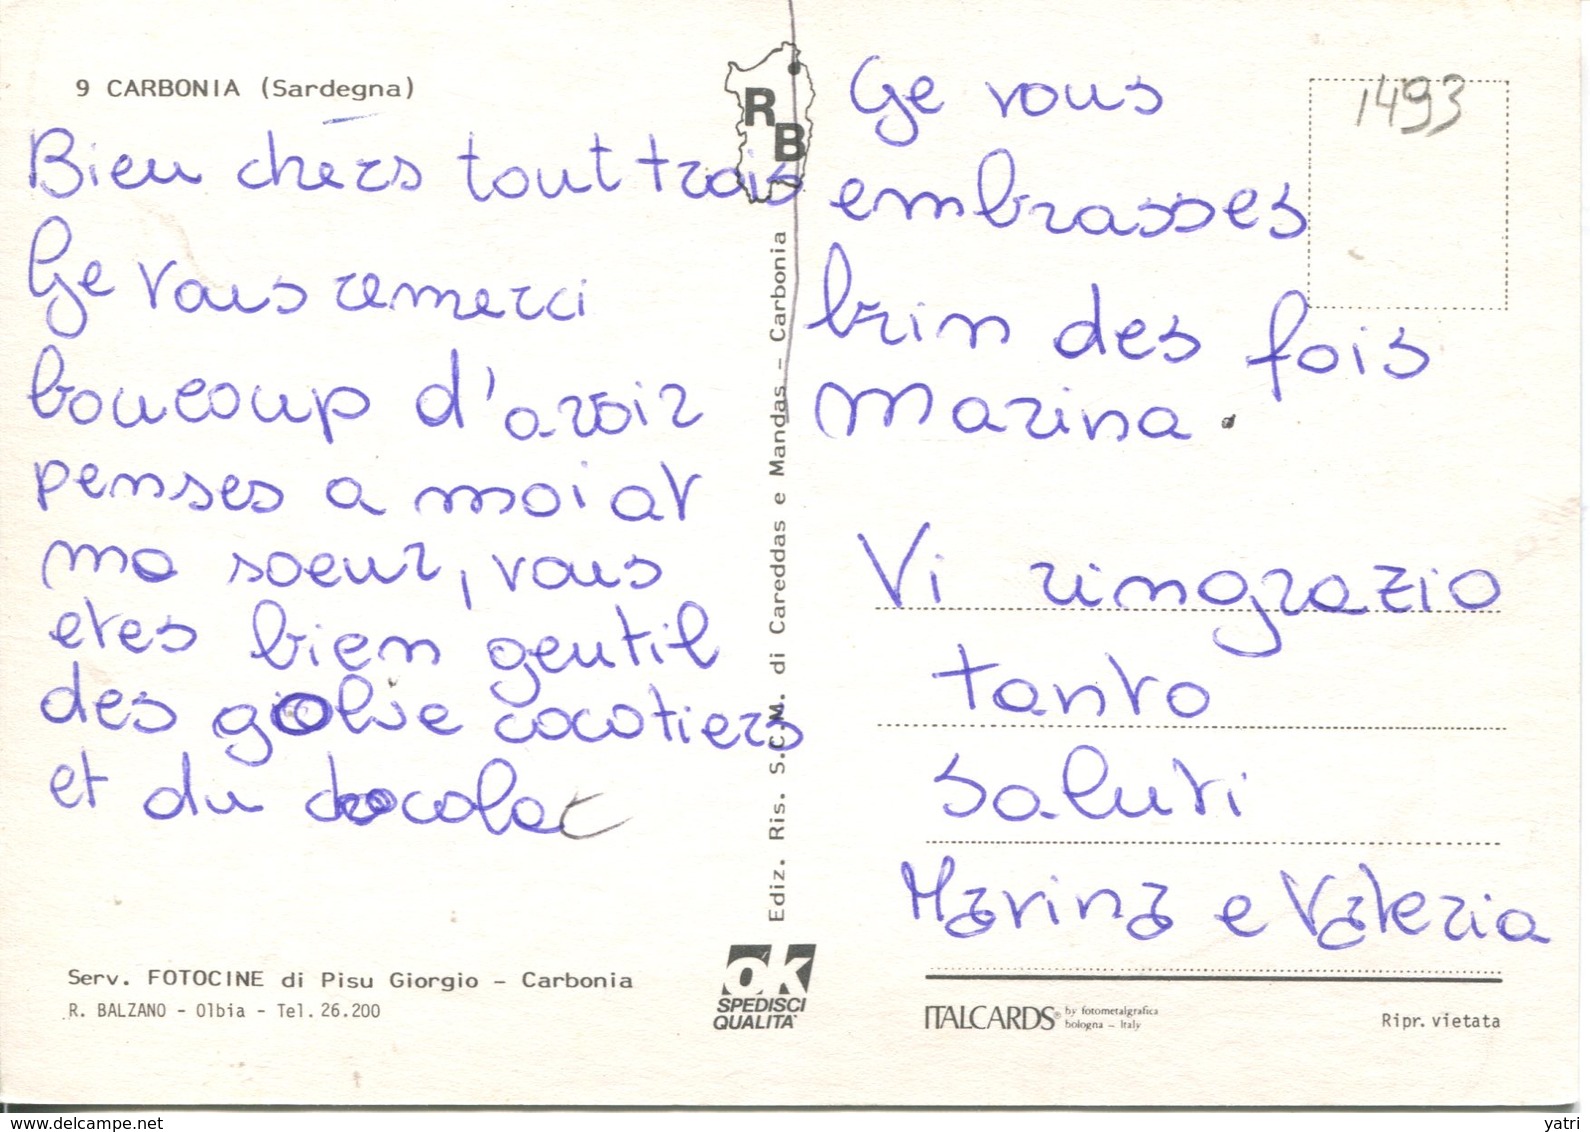 9 CARBONIA (Sardegna)
Bien chers tout trois
Ge vous remerci
boucoup d'avoir
penses a moi at
ma soeur, vous
etes bien gentil
des giolie cocotiers
et du chocolat
Serv. FOTOCINE di Pisu Giorgio - Carbonia
R. BALZANO - Olbia - Tel. 26.200
RB
Ediz. Ris. S.C.M. di Careddas e Mandas - Carbonia
OK
SPEDISCI
QUALITA'
1493
Ge vous
embrasses
brin des fois
Marina.
Vi ringrazio
tanto
saluti
Marina e Valeria
ITALCARDS® by fotometalgrafica
bologna - Italy
Ripr. vietata
www.delcampe.net
yatri